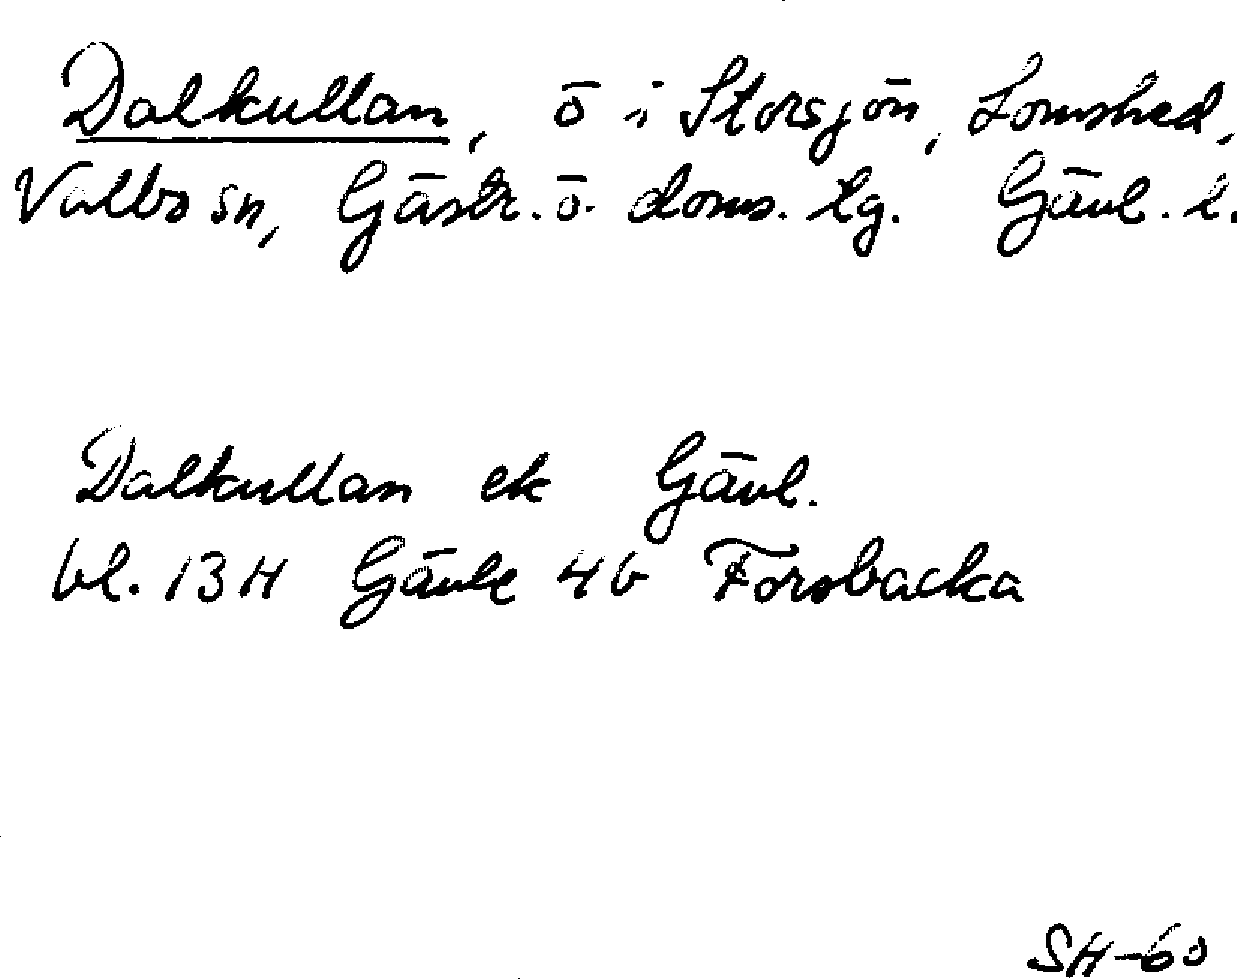 Dalkullan, ö i Storsjön, Lomshed,
Valbo sn, Gästr. ö. doms. lg. Gävl. l.
Dalkullan ek Gävl.
bl. 13H Gävle 4b Forsbacka
SH-60